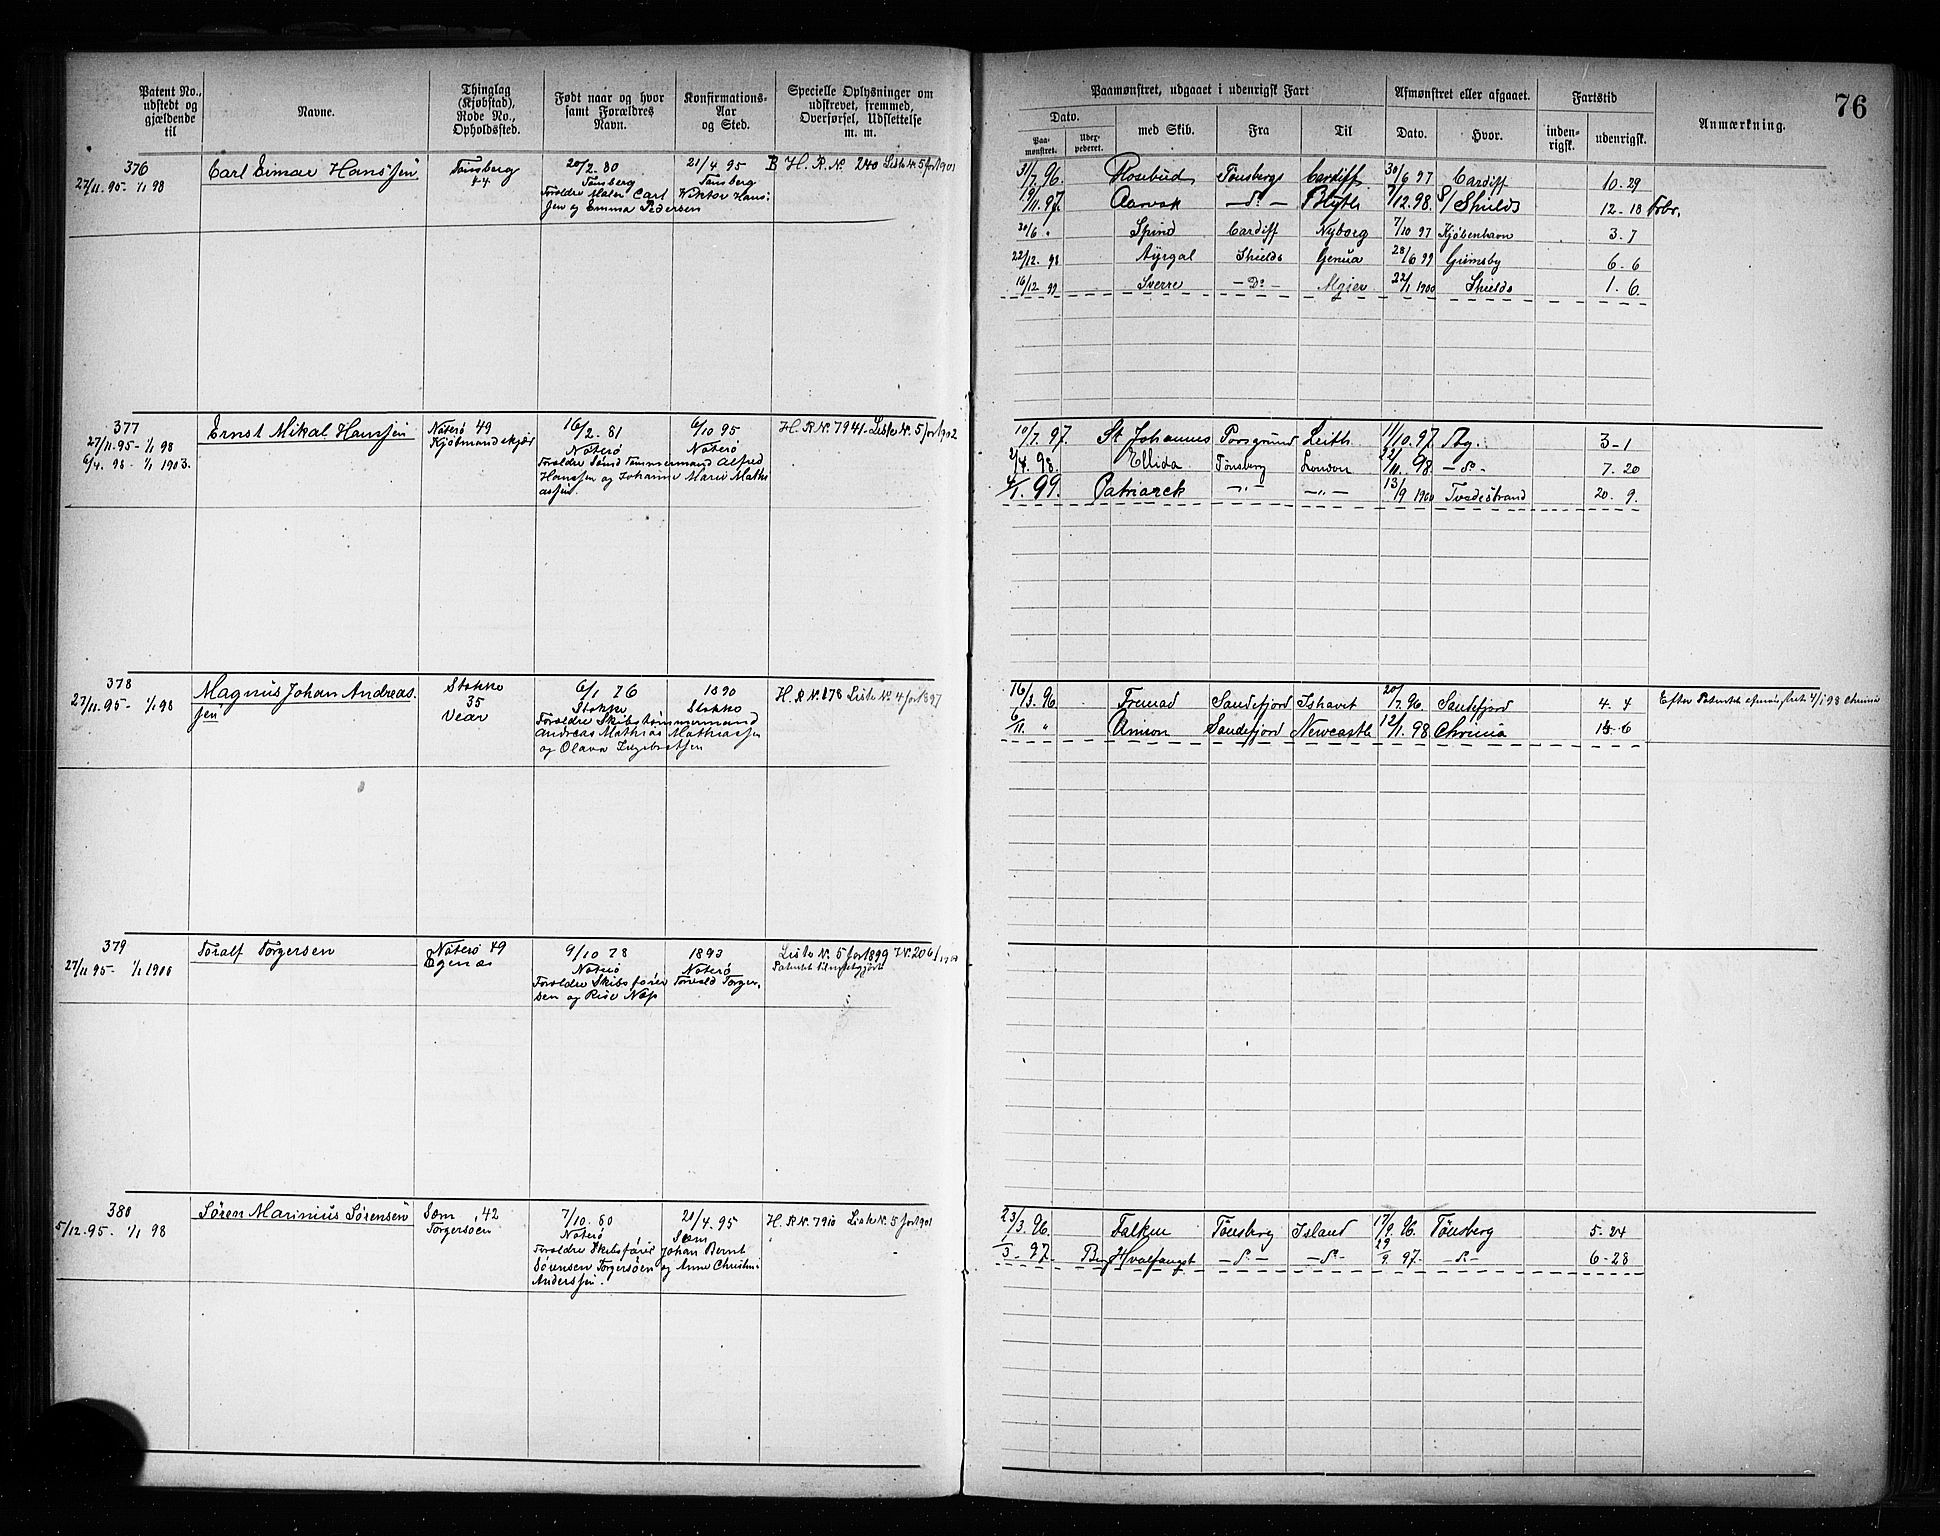 76
Patent No., udstedt og gjældende til
Navne.
Thinglag (Kjøbstad), Rode No., Opholdssted.
Født naar og hvor samt Forældres Navn.
Konfirmations-Aar og Sted.
Specielle Oplysninger om udskrevet, fremmed, Overførsel, Udslettelse m. m.
Paamønstret, udgaaet i udenrigsk Fart
Afmønstret eller afgaaet.
Fartstid
Anmærkning.
Dato.
Paa-mønstret.
Uder-pederet.
med Skib.
Fra
Til
Dato.
Hvor.
inden-rigsk.
udenrigsk.
376
27/11.95 - 1/1 98
Carl Einar Hanssen
Tønsberg
4-4
20/2. 80
Tønsberg
Forældre Maler Carl
sen og Emma Pedersen
21/4 95
Tønsberg
Wiktor Hans-
B H. R. N. 240 Liste N. 5 for 1901
31/7. 96. Rosebud Tønsberg Cardiff 30/6 97 Cardiff 10. 29
9/11. 97. Aarvak - do - Blyth 7/12. 98. S/Shields 12 - 18 Frbr.
30/6 " Spind Cardiff Nyborg 7/10 97 Kjøbenhavn 3. 7
22/12. 98 Shields Genua 28/6 99 Grimsby 6. 6
16/12 99 Sverre - Do - Algier 22/1 1900 Shields 1. 6.
377
27/11.95 - 1/1 98
6/4. 98 - 1/1 1903.
Ernst Mikal Hanssen
Nøterø 49
Kjøbmandskjær
16/2. 81
Nøterø
Forældre Tømmermand Alfred
Hanssen og Johanne Marie Mathi
assen.
6/10 95
Nøterø
H. R. N. 7941. Liste N. 5 for 1902
10/7. 97. St Johannes Porsgrund Leith 11/10. 97. 3 - 1
2/4. 98. Ellida Tønsberg London 22/11. 98. - do - 7. 20
4/1. 99. Patriarck - " - - " - 13/9 1900 Tvedestrand 20. 9.
378
27/11.95 - 1/1 98
Magnus Johan Andreas-
sen
Stokke
35
Vear
6/1 76
Stokke
Forældre Skibstømmermand
Andreas Mathias Mathiassen
og Olava Ingebretsen
1890
Stokke
H. R. N. 178 Liste N. 4 for 1897
16/3. 96 Fremad Sandefjord Ishavet 20/7. 96. Sandefjord 4. 4
6/11. " Sandefjord Newcastle 12/1. 98 Chrinia 6
Efter Patentet 4/1 98 Chrinia
379
27/11 95 - 1/1 1900
Toralf Torgersen
Nøterø 49
Egenæs
9/10 78
Nøterø
Forældre Skibsfører
sen og Rise Næp
1893
Nøterø
Torvald Torger-
Liste N. 5 for 1899
Patentet
380
5/12. 95. 1/1 98
Søren Marinius Sørensen
Sem 42
Torgersøen
7/10. 80
Nøterø
Forældre Skibsfører
Sørensen Torgersøen
Anderssen.
21/4. 95
Sem
Johan Bernt
og Anne Christine
H. R. N. 7910 Liste N. 5 for 1901
23/3. 96. Falken Tønsberg Island 17/9. 96. Tønsberg 5. 24
1/3. 97. Hvalfangst - do - - do - 29/9. 97. - do - 6 - 28